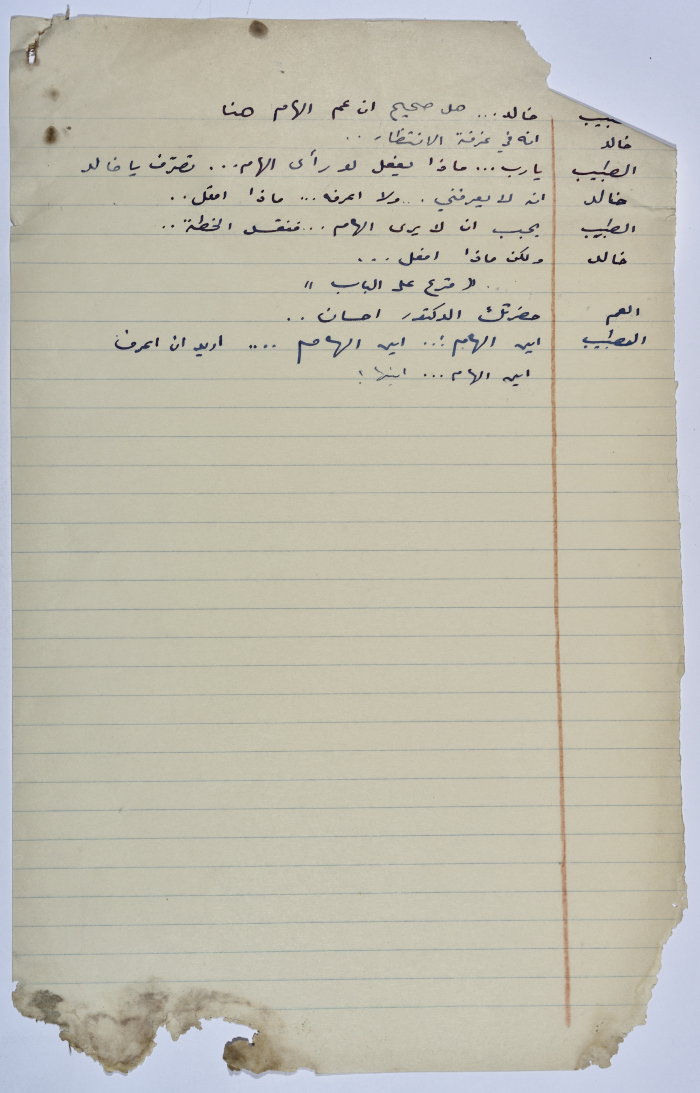 الطبيب خالد... هل صحيح ان عم الهام هنا
خالد انه في غرفة الانتظار..
الطبيب يارب... ماذا يفعل لو رأى الهام... تصرّف يا خالد
خالد انه لا يعرفني.. ولا اعرفه... ماذا افعل..
الطبيب يجب ان لا يرى الهام... فتفسل الخطة..
خالد ولكن ماذا افعل...
« قرع على الباب »
العم حضرتك الدكتور احسان..
الطبيب اين الهام؟.. اين الهام.... اريد ان اعرف
اين الهام... اينها؟